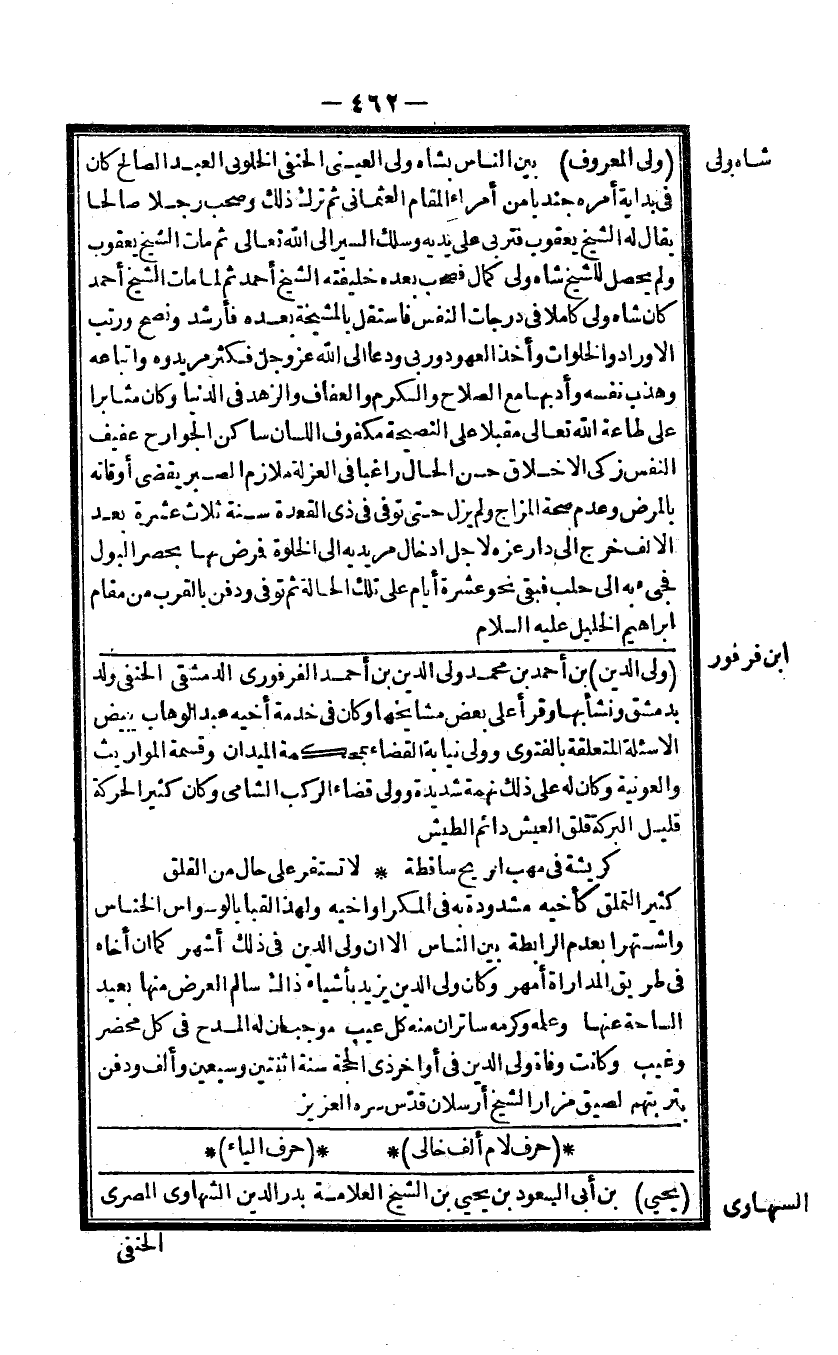 — ٤٦٢ —
شاه ولى
(ولى المعروف) بين الناس بشاه ولى العينى الحنفى الخلوتى العبد الصالح كان
فى بداية أمره جنديا من أمراء المقام العثمانى ثم ترك ذلك وصحب رجلا صالحا
يقال له الشيخ يعقوب فتربى على يديه وسلك السير الى الله تعالى ثم مات الشيخ يعقوب
ولم يحصل للشيخ شاه ولى كمال فصحب بعده خليفته الشيخ أحمد ثم لما مات الشيخ أحمد
كان شاه ولى كاملا فى درجات النفس فاستقل بالمشيخة بعده فأرشد ونصح ورتب
الاوراد والخلوات وأخذ العهود وربى ودعا الى الله عز وجل فكثر مريدوه واتباعه
وهذب نفسه وأدبها مع الصلاح والكرم والعفاف والزهد فى الدنيا وكان مثابرا
على طاعة الله تعالى مقبلا على النصيحة مكفوف اللسان ساكن الجوارح عفيف
النفس زكى الاخلاق حسن الحال راغبا فى العزلة ملازم الصبر يقضى أوقاته
بالمرض وعدم صحة المزاج ولم يزل حتى توفى فى ذى القعدة سنة ثلاث عشرة بعد
الالف خرج الى دار عزه لاجل ادخال مريديه الى الخلوة فمرض بها بحصر البول
فجىء به الى حلب فبقى نحو عشرة أيام على تلك الحالة ثم توفى ودفن بالقرب من مقام
ابراهيم الخليل عليه السلام
ابن فرفور
(ولى الدين) بن أحمد بن محمد ولى الدين بن أحمد الفرفورى الدمشقى الحنفى ولد
بدمشق ونشأ بها وقرأ على بعض مشايخها وكان فى خدمة أخيه عبد الوهاب يبيض
الاسئلة المتعلقة بالفتوى وولى نيابة القضاء بمحكمة الميدان وقسمة المواريث
والعونية وكان له على ذلك نهمة شديدة وولى قضاء الركب الشامى وكان كثير الحركة
قليل البركة قلق العيش دائم الطيش
كريشة فى مهب الريح ساقطة * لا تستقر على حال من القلق
كثير التملق كأخيه مشدودة به فى المكر اواخيه ولهذا لقبا بالوسواس الخناس
واشتهرا بعدم الرابطة بين الناس الا ان ولى الدين فى ذلك أشهر كما ان أخاه
فى طريق المداراة أمهر وكان ولى الدين يزيد بأشياء ذاك سالم العرض منها بعيد
الساحة عنها وعلمه وكرمه ساتران منه كل عيب موجبان له المدح فى كل محضر
وغيب وكانت وفاة ولى الدين فى أواخر ذى الحجة سنة اثنتين وسبعين وألف ودفن
بتربتهم لصيق مزار الشيخ أرسلان قدس سره العزيز
*(حرف لام ألف خالى)* *(حرف الياء)*
الشهاوى
(يحيى) بن أبى السعود بن يحيى بن الشيخ العلامة بدر الدين الشهاوى المصرى
الحنفى